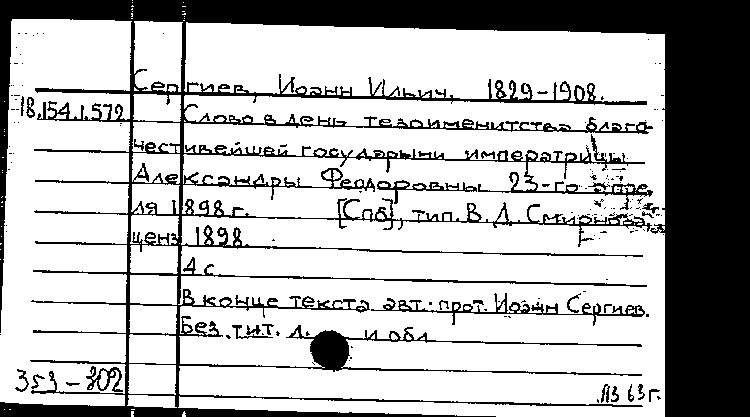 Сергиев, Иоанн Ильич, 1829-1908.
18.154.1.572 Слово в день тезоименитства благо-
честивейшей государыни императрицы
Александры Феодоровны 23-го апре-
ля 1898 г. [Спб], тип. В. Д. Смирнова,
ценз. 1898.
4 с.
В конце текста авт.: прот. Иоанн Сергиев.
Без тит. л. и обл.
353-802
63 г.